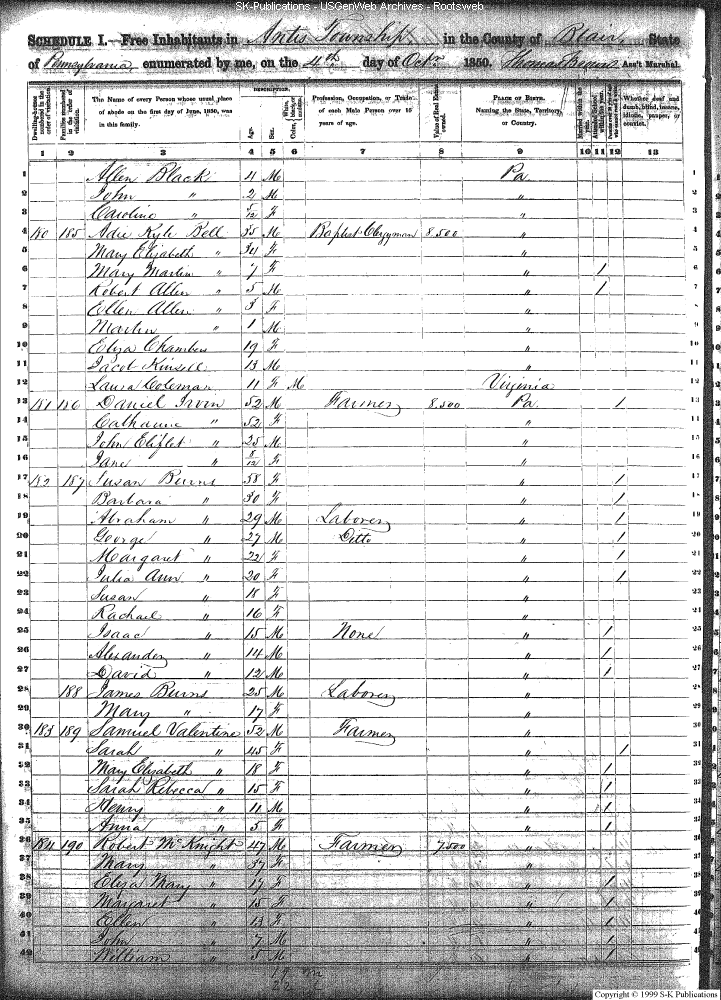 SK-Publications - USGenWeb Archives - Rootsweb
SCHEDULE I.—Free Inhabitants in Antis Township in the County of Blair State
of Pennsylvania enumerated by me, on the 4th day of Octr 1850. Thomas Ass't Marshal.
Dwelling-houses numbered in the order of visitation. Families numbered in the order of visitation. The Name of every Person whose usual place of abode on the first day of June, 1850, was in this family. DESCRIPTION. Age. Sex. Color, White, black, or mulatto. Profession, Occupation, or Trade of each Male Person over 15 years of age. Value of Real Estate owned. PLACE OF BIRTH. Naming the State, Territory, or Country. Married within the year. Whether deaf and dumb, blind, insane, idiotic, pauper, or convict.
1 2 3 4 5 6 7 8 9 10 11 12 13
1 Allen Black 11 M Pa 1
2 John " 2 M " 2
3 Caroline " 5/12 F " 3
4 180 185 Adie Kyle Bell 35 M Baptist Clergyman 8.500 " 4
5 Mary Elizabeth " 34 F " 5
6 Mary Martin " 7 F " / 6
7 Robert Allen " 5 M " / 7
8 Ellen Allen " 3 F " 8
9 Martin " 1 M " 9
10 Eliza Chambers 19 F " 10
11 Jacob Kinsell 13 M " 11
12 Laura Coleman 11 F M Virginia 12
13 181 186 Daniel Irvin 52 M Farmer 8.500 Pa / 13
14 Catharine " 52 F " 14
15 John Eliflet " 25 M " 15
16 Jane " 8/12 F " 16
17 182 187 Susan Burns 58 F " / 17
18 Barbara " 30 F " / 18
19 Abraham " 29 M Laborer " / 19
20 George " 27 M Ditto " / 20
21 Margaret " 22 F " / 21
22 Julia Ann " 20 F " / 22
23 Susan " 18 F " 23
24 Rachael " 16 F " 24
25 Isaac " 15 M None " / 25
26 Alexander " 14 M " / 26
27 David " 12 M " / 27
28 188 James Burns 25 M Laborer " 28
29 Mary " 17 F " 29
30 183 189 Samuel Valentine 52 M Farmer " 30
31 Sarah " 45 F " / 31
32 Mary Elizabeth " 18 F " / 32
33 Sarah Rebecca " 15 F " / 33
34 Henry " 11 M " / 34
35 Anna " 5 F " / 35
36 184 190 Robert McKnight 47 M Farmer 7.500 " 36
37 Mary " 37 F " 37
38 Eliza Mary " 17 F " / 38
39 Margaret " 15 F " / 39
40 Ellen " 13 F " / 40
41 John " 7 M " / 41
42 William " 5 M " / 42
19 m
Copyright © 1999 S-K Publications